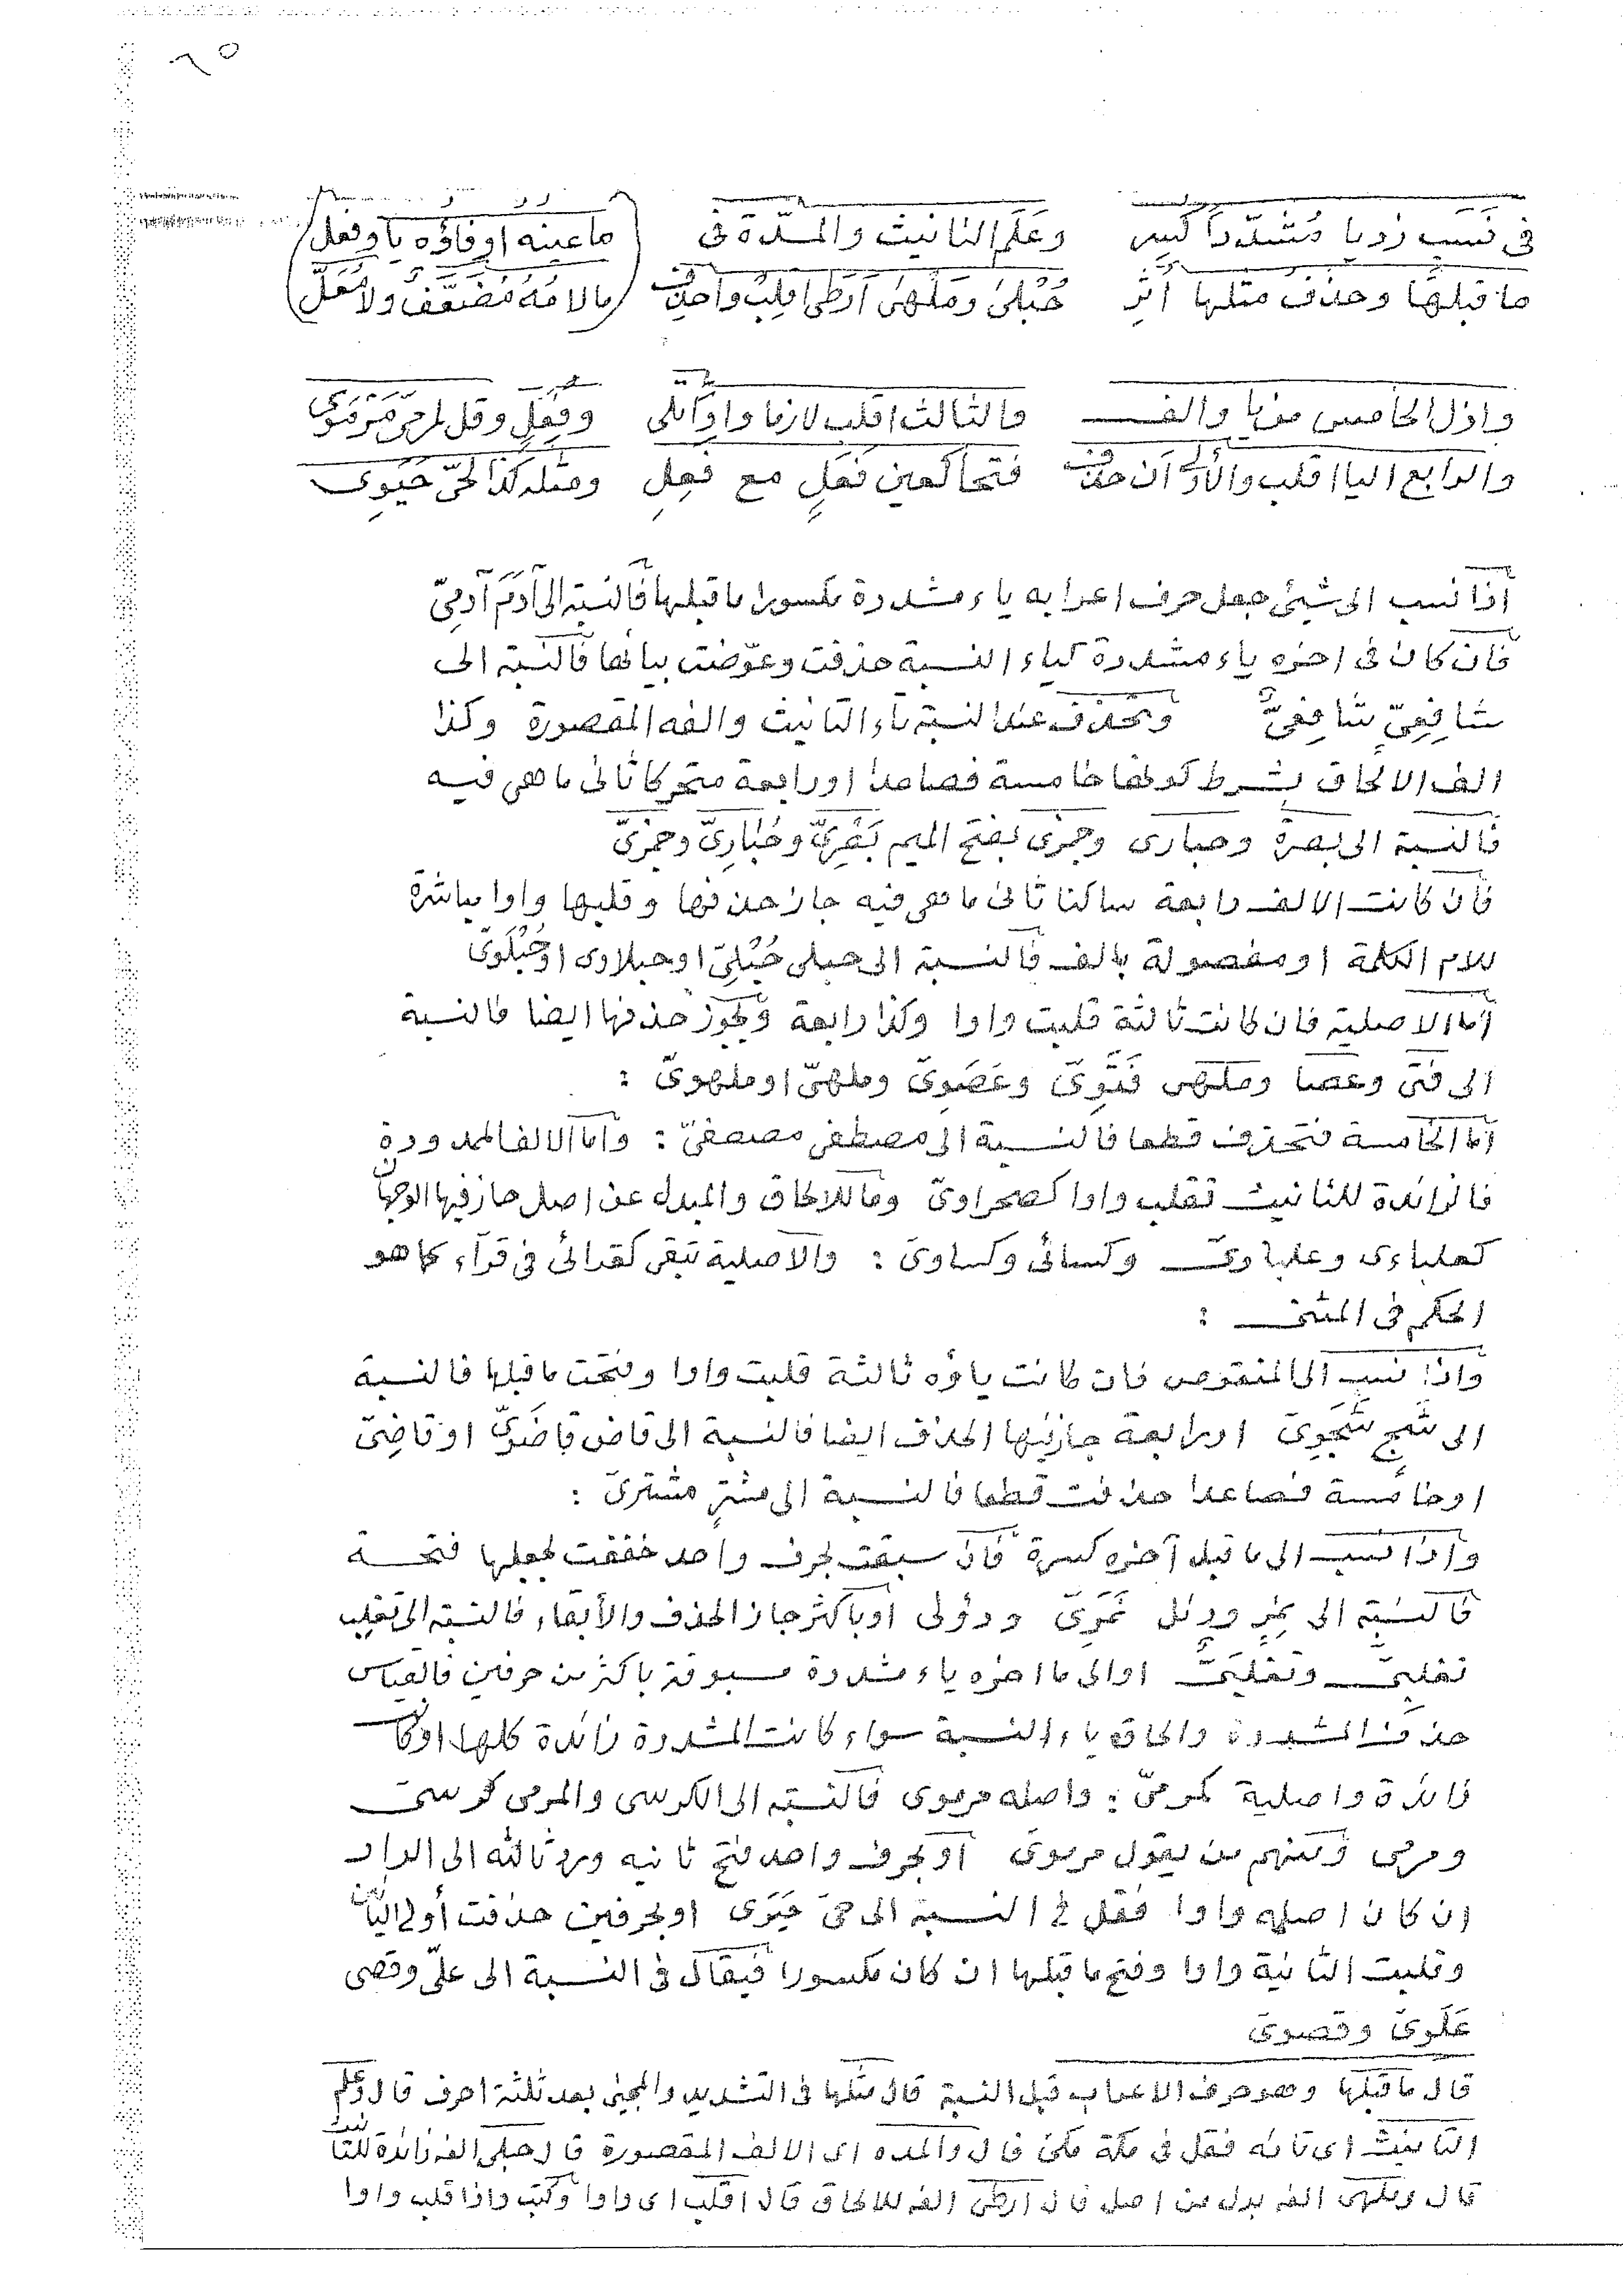 ٦٥
فى نسب زد يا مُشدّدًا كسر وعَلَم التانيث والمدّة فى ما عينه او فاؤه يا وفعل
ما قبلها وحذف مثلها أثر حُبْلىٰ ومَلْهىٰ أرطى اقلب واحذف مالامُهُ مُضعّفُ ولا مُعَلّ
واذل الخامس من يا والف والثالث اقلب لازما واوا وفعل وقل لمرمىّ مرموى
والرابع اليا اقلب والأولى ان حذف فتحا كعين فَعَلٍ مع فُعِلِ ومثله كذا لحىّ حَيَوِى
أذا نسب الى شيئ جعل حرف اعرابه ياء مشددة مكسورا ما قبلها فالنسبة الى آدَمَ آدمِىّ
فان كان فى اخره ياء مشددة كياء النسبة حذفت وعوّضت بيائها فالنسبة الى
شافِعِىّ شافِعِىّ وتحذف عند النسبة تاء التانيث والفه المقصورة وكذا
الف الالحاق بشرط كونها خامسة فصاعدا او رابعة متحركا ثانى ما هى فيه
فالنسبة الى بصرة وحبارى وجمزى بفتح الميم بَصْرِىّ وحُبَارِىّ وجمزىّ
فان كانت الالف رابعة ساكنا ثانى ما هى فيه جاز حذفها وقلبها واوا مباشرة
للام الكلمة او مفصولة بالف فالنسبة الى حبلى حُبْلِىّ او حبلاوى او حُبْلَوىّ
أما الاصلية فان كانت ثالثة قلبت واوا وكذا رابعة ويجوز حذفها ايضا فالنسبة
الى فتى وعصا وملهى فَتَوِىّ وعَصَوِىّ وملهىّ او ملهوىّ :
أما الخامسة فتحذف قطعا فالنسبة الى مصطفى مصطفىّ : واما الالف الممدودة
فالزائدة للتانيث تقلب واوا كصحراوىّ وما للالحاق والمبدل عن اصل جاز فيها الوجهان
كعلباءى وعلباوىّ وكسائى وكساوىّ : والاصلية تبقى كقرائى فى قرآء كما هو
الحكم فى المثنى :
واذا نسب الى المنقوص فان كانت ياؤه ثالثة قلبت واوا وفتحت ما قبلها فالنسبة
الى شَجٍ شَجَوِىّ او رابعة جاز فيها الحذف ايضا فالنسبة الى قاض قاضَوىّ او قاضِىّ
او خامسة فصاعدا حذفت قطعا فالنسبة الى مشترٍ مشترىّ :
واذا نسب الى ما قبل آخره كسرة فان سبقت بحرف واحد خففت بجعلها فتحة
فالنسبة الى نمِرٍ ودئل نَمَرِىّ ودؤلى او باكثر جاز الحذف والأبقاء فالنسبة الى تغلِب
تغلبىّ وتغلَبىّ او الى ما اخره ياء مشددة مسبوقة باكثر من حرفين فالقياس
حذف المشددة والحاق ياء النسبة سواء كانت المشددة زائدة كلها او كانت
زائدة واصلية كمرمىّ : واصله مرموى فالنسبة الى الكرسى والمرمى كرسىّ
ومرمى ومنهم من يقول مرموىّ أو بحرف واحد فتح ثانيه ورد ثالثه الى الواو
ان كان اصله واوا فقل فى النسبة الى حىّ حَيَوى او بحرفين حذفت أولى اليائين
وقلبت الثانية واوا وفتح ما قبلها ان كان مكسورا فيقال فى النسبة الى علىّ وقصى
عَلَوىّ وقصوىّ
قال ما قبلها وهو حرف الاعراب قبل النسبة قال مثلها فى التشديد والمجيئ بعد ثلثة احرف قال وعلم
التانيث اى تائه فقل فى مكة مكىّ قال والمده اى الالف المقصورة قال حبلى الفه زائدة للتانيث
قال وملهى الفه بدل من اصل قال ارطى الفه للالحاق قال اقلب اى واوا وكتب واذا قلب واوا